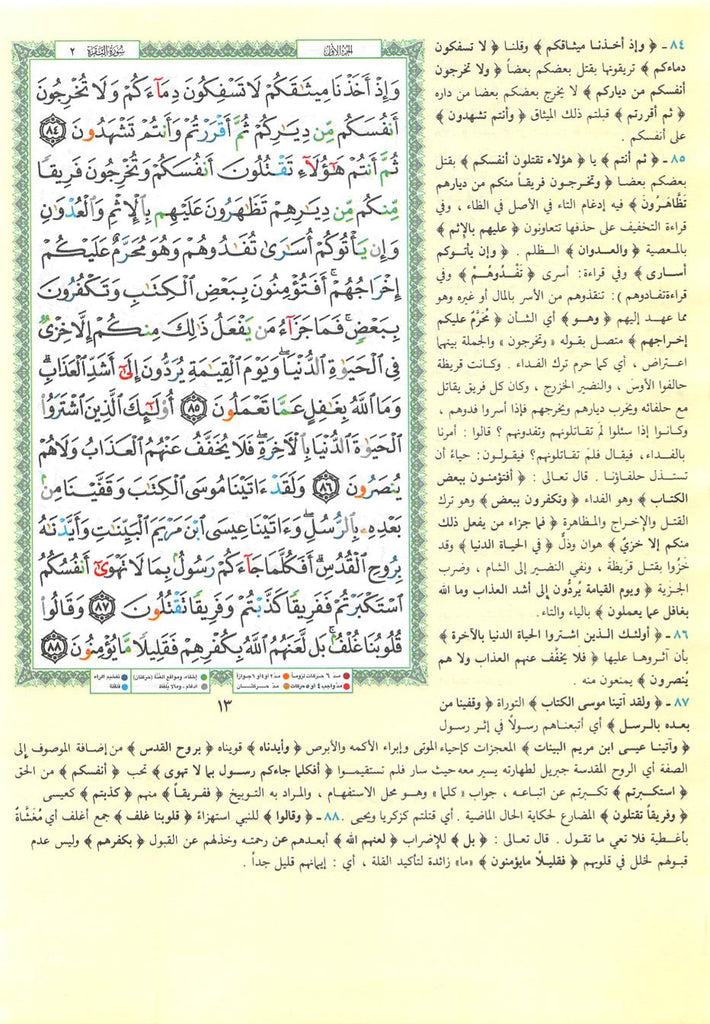 سورة البقرة ٢
الجزء الأول
وَإِذْ أَخَذْنَا مِيثَٰقَكُمْ لَا تَسْفِكُونَ دِمَآءَكُمْ وَلَا تُخْرِجُونَ
أَنفُسَكُم مِّن دِيَٰرِكُمْ ثُمَّ أَقْرَرْتُمْ وَأَنتُمْ تَشْهَدُونَ ٨٤
ثُمَّ أَنتُمْ هَٰٓؤُلَآءِ تَقْتُلُونَ أَنفُسَكُمْ وَتُخْرِجُونَ فَرِيقًا
مِّنكُم مِّن دِيَٰرِهِمْ تَظَٰهَرُونَ عَلَيْهِم بِٱلْإِثْمِ وَٱلْعُدْوَٰنِ
وَإِن يَأْتُوكُمْ أُسَٰرَىٰ تُفَٰدُوهُمْ وَهُوَ مُحَرَّمٌ عَلَيْكُمْ
إِخْرَاجُهُمْ ۚ أَفَتُؤْمِنُونَ بِبَعْضِ ٱلْكِتَٰبِ وَتَكْفُرُونَ
بِبَعْضٍ ۚ فَمَا جَزَآءُ مَن يَفْعَلُ ذَٰلِكَ مِنكُمْ إِلَّا خِزْىٌ
فِى ٱلْحَيَوٰةِ ٱلدُّنْيَا ۖ وَيَوْمَ ٱلْقِيَٰمَةِ يُرَدُّونَ إِلَىٰٓ أَشَدِّ ٱلْعَذَابِ ۗ
وَمَا ٱللَّهُ بِغَٰفِلٍ عَمَّا تَعْمَلُونَ ٨٥ أُو۟لَٰٓئِكَ ٱلَّذِينَ ٱشْتَرَوُا۟
ٱلْحَيَوٰةَ ٱلدُّنْيَا بِٱلْءَاخِرَةِ ۖ فَلَا يُخَفَّفُ عَنْهُمُ ٱلْعَذَابُ وَلَا هُمْ
يُنصَرُونَ ٨٦ وَلَقَدْ ءَاتَيْنَا مُوسَى ٱلْكِتَٰبَ وَقَفَّيْنَا مِنۢ
بَعْدِهِۦ بِٱلرُّسُلِ ۖ وَءَاتَيْنَا عِيسَى ٱبْنَ مَرْيَمَ ٱلْبَيِّنَٰتِ وَأَيَّدْنَٰهُ
بِرُوحِ ٱلْقُدُسِ ۗ أَفَكُلَّمَا جَآءَكُمْ رَسُولٌۢ بِمَا لَا تَهْوَىٰٓ أَنفُسُكُمُ
ٱسْتَكْبَرْتُمْ فَفَرِيقًا كَذَّبْتُمْ وَفَرِيقًا تَقْتُلُونَ ٨٧ وَقَالُوا۟
قُلُوبُنَا غُلْفٌۢ ۚ بَل لَّعَنَهُمُ ٱللَّهُ بِكُفْرِهِمْ فَقَلِيلًا مَّا يُؤْمِنُونَ ٨٨
مدّ ٦ حركات لزوماً
مدّ ٢ أو ٤ أو ٦ جوازاً
إخفاء، ومواقع الغنّة (حركتان)
تفخيم الراء
مدّ واجب ٤ أو ٥ حركات
مدّ حركتان
إدغام، وما لا يلفظ
قلقلة
١٣
٨٤ ـ ﴿ وإذ أخذنا ميثاقكم ﴾ وقلنا ﴿ لا تسفكون
دماءكم ﴾ تريقونها بقتل بعضكم بعضاً ﴿ ولا تخرجون
أنفسكم من دياركم ﴾ لا يخرج بعضكم بعضا من داره
﴿ ثم أقررتم ﴾ قبلتم ذلك الميثاق ﴿ وأنتم تشهدون ﴾
على أنفسكم .
٨٥ ـ ﴿ ثم أنتم ﴾ يا ﴿ هؤلاء تقتلون أنفسكم ﴾ بقتل
بعضكم بعضا ﴿ وتخرجون فريقاً منكم من ديارهم
تظّاهرون ﴾ فيه إدغام التاء في الأصل في الظاء ، وفي
قراءة التخفيف على حذفها تتعاونون ﴿ عليهم بالإثم ﴾
بالمعصية ﴿ والعدوان ﴾ الظلم . ﴿ وإن يأتوكم
أسارى ﴾ وفي قراءة : أسرى ﴿ تَفْدُوهُمْ ﴾ وفي
قراءة تفادوهم ﴾ : تنقذوهم من الأسر بالمال أو غيره وهو
مما عهد إليهم ﴿ وهو ﴾ أي الشأن ﴿ محَرَّم عليكم
إخراجهم ﴾ متصل بقوله « وتخرجون » والجملة بينهما
اعتراض ، أي كما حرم ترك الفداء . وكانت قريظة
حالفوا الأوسَ ، والنضير الخزرج ، وكان كل فريق يقاتل
مع حلفائه ويخرب ديارهم ويخرجهم فإذا أسروا فدوهم ،
وكانوا إذا سئلوا لمَ تقاتلونهم وتفدونهم ؟ قالوا : أمرنا
بالفداء، فيقال فلمَ تقاتلونهم؟ فيقولون: حياءً أن
تستذل حلفاؤنا . قال تعالى : ﴿ أفتؤمنون ببعض
الكتاب ﴾ وهو الفداء ﴿ وتكفرون ببعض ﴾ وهو ترك
القتل والإخراج والمظاهرة ﴿ فما جزاء من يفعل ذلك
منكم إلا خزيٌ ﴾ هوان وذلٌّ ﴿ في الحياة الدنيا ﴾ وقد
خَزُوا بقتل قريظة ، ونفي النضير إلى الشام ، وضرب
الجزية ﴿ ويوم القيامة يُردُّون إلى أشد العذاب وما الله
بغافل عما يعملون ﴾ بالياء والتاء.
٨٦ ـ ﴿ أولئك الذين اشتروا الحياة الدنيا بالآخرة ﴾
بأن آثروها عليها ﴿ فلا يخفَّف عنهم العذاب ولا هم
يُنصرون ﴾ يمنعون منه .
٨٧ ـ ﴿ ولقد آتينا موسى الكتاب ﴾ التوراة ﴿ وقفينا من
بعده بالرسل ﴾ أي أتبعناهم رسولاً في إثر رسول
﴿ وآتينا عيسى ابن مريم البينات ﴾ المعجزات كإحياء الموتى وإبراء الأكمه والأبرص ﴿ وأيدناه ﴾ قويناه ﴿ بروح القدس ﴾ من إضافة الموصوف إلى
الصفة أي الروح المقدسة جبريل لطهارته يسير معه حيث سار فلم تستقيموا ﴿ أفكلما جاءكم رسول بما لا تهوى ﴾ تحب ﴿ أنفسكم ﴾ من الحق
﴿ استكبرتم ﴾ تكبرتم عن اتباعه ، جواب « كلما » وهو محل الاستفهام ، والمراد به التوبيخ ﴿ ففريقاً ﴾ منهم ﴿ كذبتم ﴾ كعيسى
﴿ وفريقاً تقتلون ﴾ المضارع لحكاية الحال الماضية . أي قتلتم كزكريا ويحيى . ٨٨ ـ ﴿ وقالوا ﴾ للنبي استهزاءً ﴿ قلوبنا غلف ﴾ جمع أغلف أي مُغَشَّاةٌ
بأغطية فلا تعي ما تقول . قال تعالى : ﴿ بل ﴾ للإضراب ﴿ لعنهم الله ﴾ أبعدهم عن رحمته وخذلهم عن القبول ﴿ بكفرهم ﴾ وليس عدم
قبولهم لخلل في قلوبهم ﴿ فقليلًا مايؤمنون ﴾ «ما» زائدة لتأكيد القلة ، أي : إيمانهم قليل جداً .